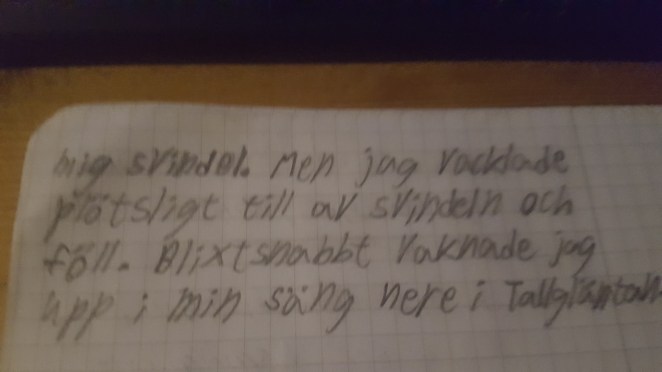 mig svindel. Men jag vacklade
plötsligt till av svindeln och
föll. Blixtsnabbt vaknade jag
upp i min säng nere i Tallgläntan.